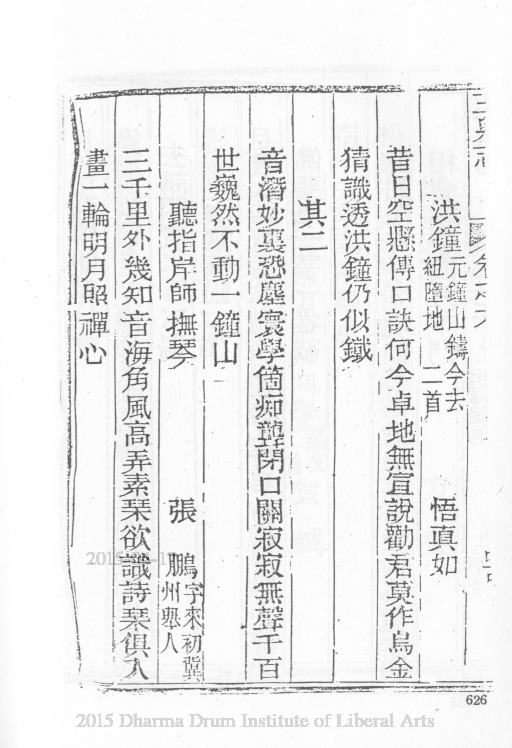 洪鐘 元鐘山鑄今去紐墮地 二首 悟真如
昔日空懸傳口訣何今卓地無宣說勸君莫作烏金
猜識透洪鐘仍似鐵
其二
音濳妙裏恐塵寰學箇痴聾閉口關寂寂無聲千百
世巍然不動一鐘山
聽指岸師撫琴 張鵬 字來初冀州舉人
三千里外幾知音海角風高弄素琹欲識詩琹俱入
畫一輪明月照禪心
626
2015 Dharma Drum Institute of Liberal Arts